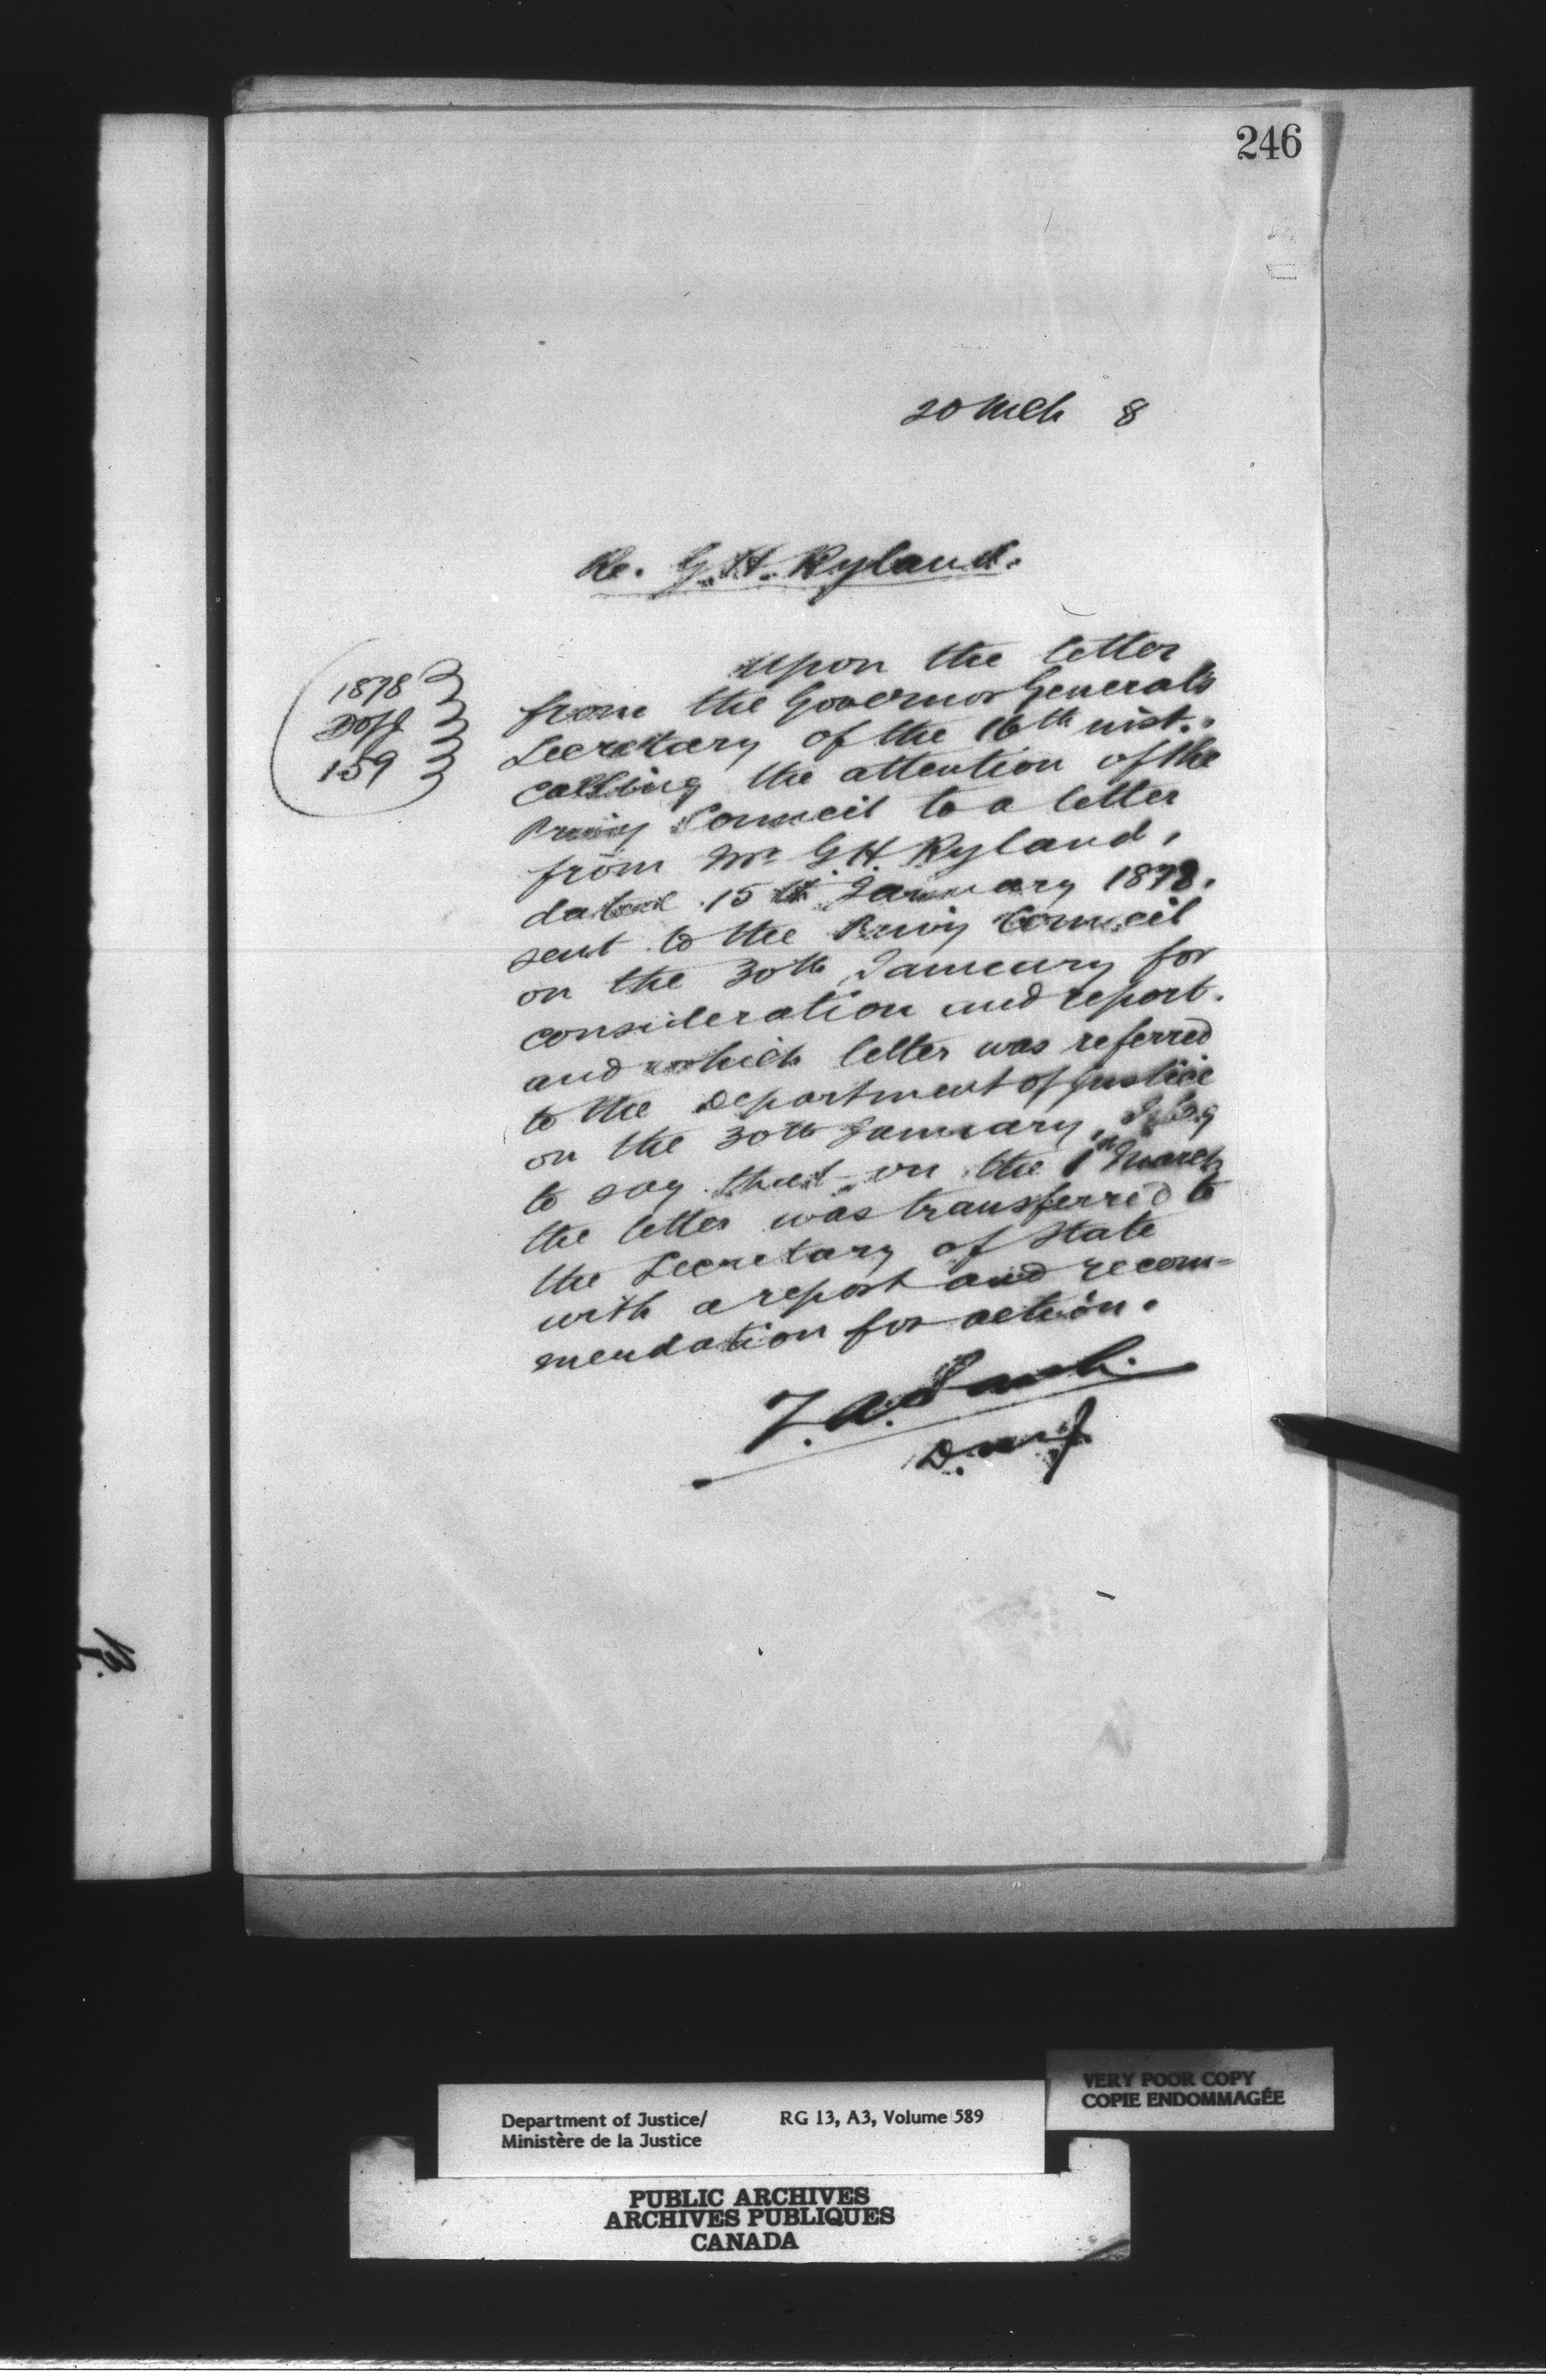 246
20 Mch 8
Re. G. H. Ryland.
1878
DofJ
159
Upon the letter
from the Governor General's
Secretary of the 16th inst.
calling the attention of the
Privy Council to a letter
from Mr G H. Ryland,
dated 15th January 1878.
sent to the Privy Council
on the 30th January for
consideration and report.
and which letter was referred
to the Department of Justice
on the 30th January, I beg
to say that on the 1st March
the letter was transferred to
the Secretary of State
with a report and recom-
mendation for action.
Z. A. Lash.
D.M.J
VERY POOR COPY
COPIE ENDOMMAGÉE
Department of Justice/ RG 13, A3, Volume 589
Ministère de la Justice
PUBLIC ARCHIVES
ARCHIVES PUBLIQUES
CANADA